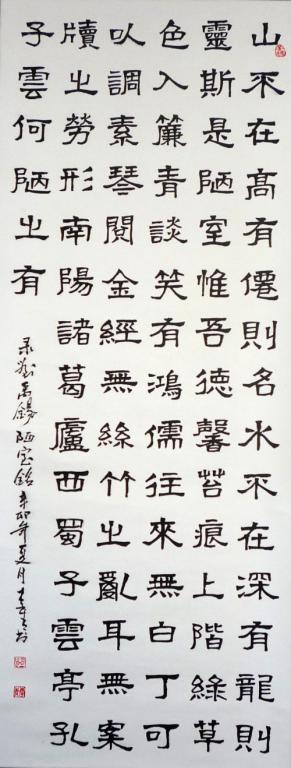 山不在髙有僊則名水不在深有龍則
靈斯是陋室惟吾德馨苔痕上階綠草
色入簾青談笑有鴻儒往來無白丁可
以調素琴閱金經無絲竹之亂耳無案
牘之勞形南陽諸葛廬西蜀子雲亭孔
子雲何陋之有
录劉禹錫陋室銘辛卯年夏月